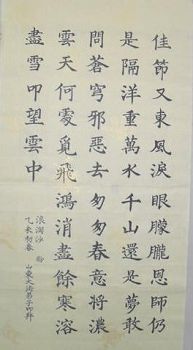 佳節又東風淚眼朦朧恩師仍
是隔洋重萬水千山還是夢敢
問蒼穹邪惡去匆匆春意將濃
雲天何處覓飛鴻消盡餘寒溶
盡雪叩望雲中
浪淘沙
山東大法弟子叩拜